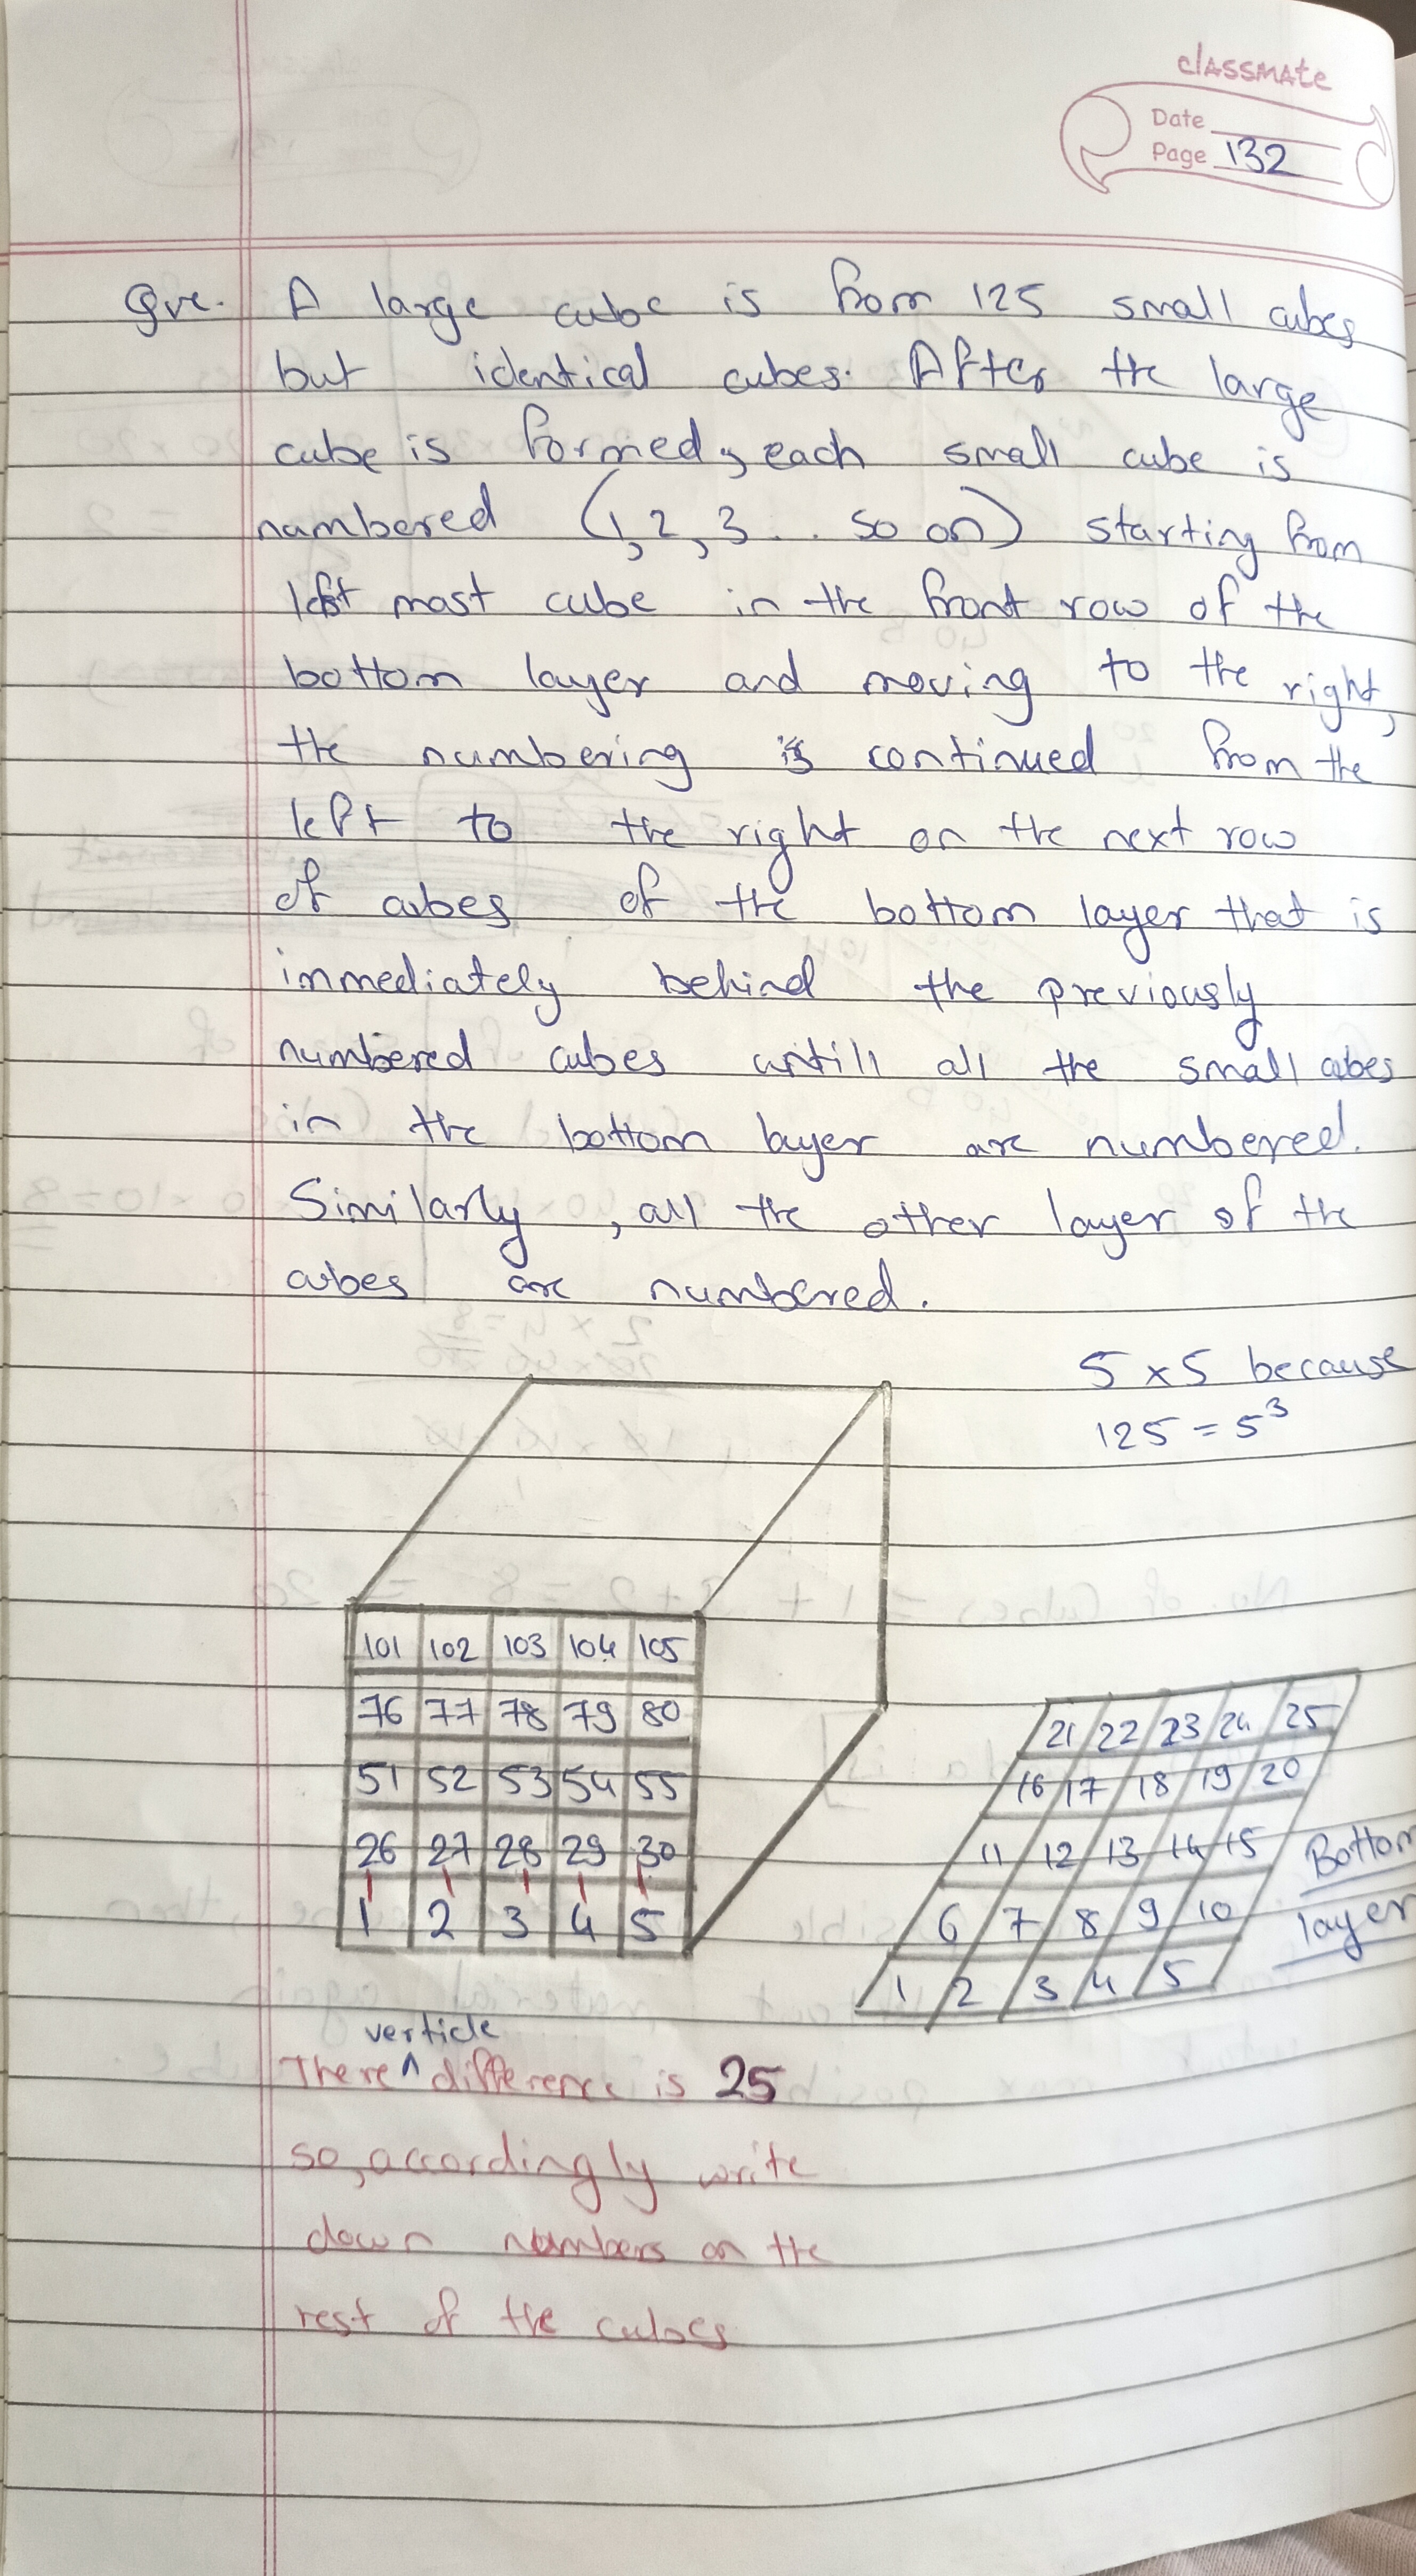 classmate
Date
Page 132
Que. A large cube is from 125 small cubes
but identical cubes. After the large
cube is formed, each small cube is
numbered (1, 2, 3 . . so on) starting from
left most cube in the front row of the
bottom layer and moving to the right,
the numbering is continued from the
left to the right on the next row
of cubes of the bottom layer that is
immediately behind the previously
numbered cubes untill all the small cubes
in the bottom layer are numbered.
Similarly, all the other layer of the
cubes are numbered.
5 x 5 because
125 = 5³
101 102 103 104 105
76 77 78 79 80
51 52 53 54 55
26 27 28 29 30
1 2 3 4 5
21 22 23 24 25
16 17 18 19 20
11 12 13 14 15
6 7 8 9 10
1 2 3 4 5
Bottom
layer
verticle
There ^ difference is 25
so, accordingly write
down numbers on the
rest of the cubes